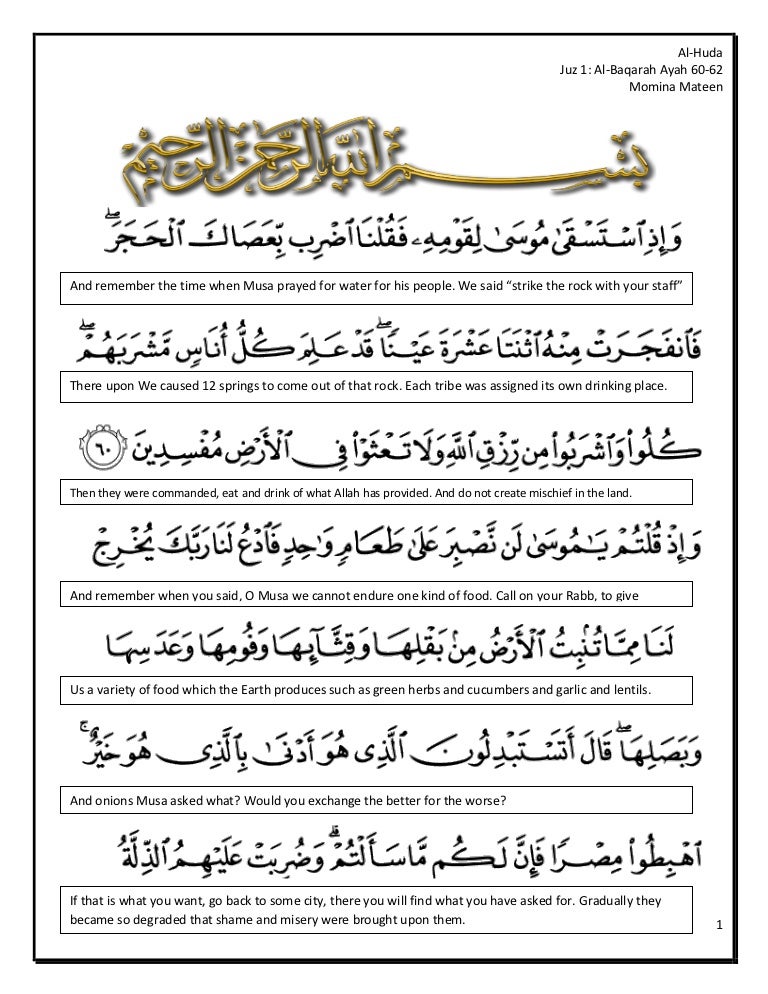 Al-Huda
Juz 1: Al-Baqarah Ayah 60-62
Momina Mateen
بِسْمِ اللهِ الرَّحْمٰنِ الرَّحِيْمِ
وَإِذِ ٱسْتَسْقَىٰ مُوسَىٰ لِقَوْمِهِۦ فَقُلْنَا ٱضْرِب بِّعَصَاكَ ٱلْحَجَرَ ۖ
And remember the time when Musa prayed for water for his people. We said “strike the rock with your staff”
فَٱنفَجَرَتْ مِنْهُ ٱثْنَتَا عَشْرَةَ عَيْنًا ۖ قَدْ عَلِمَ كُلُّ أُنَاسٍ مَّشْرَبَهُمْ ۖ
There upon We caused 12 springs to come out of that rock. Each tribe was assigned its own drinking place.
كُلُوا۟ وَٱشْرَبُوا۟ مِن رِّزْقِ ٱللَّهِ وَلَا تَعْثَوْا۟ فِى ٱلْأَرْضِ مُفْسِدِينَ ٦٠
Then they were commanded, eat and drink of what Allah has provided. And do not create mischief in the land.
وَإِذْ قُلْتُمْ يَـٰمُوسَىٰ لَن نَّصْبِرَ عَلَىٰ طَعَامٍ وَٰحِدٍ فَٱدْعُ لَنَا رَبَّكَ يُخْرِجْ
And remember when you said, O Musa we cannot endure one kind of food. Call on your Rabb, to give
لَنَا مِمَّا تُنۢبِتُ ٱلْأَرْضُ مِنۢ بَقْلِهَا وَقِثَّآئِهَا وَفُومِهَا وَعَدَسِهَا
Us a variety of food which the Earth produces such as green herbs and cucumbers and garlic and lentils.
وَبَصَلِهَا ۖ قَالَ أَتَسْتَبْدِلُونَ ٱلَّذِى هُوَ أَدْنَىٰ بِٱلَّذِى هُوَ خَيْرٌ ۚ
And onions Musa asked what? Would you exchange the better for the worse?
ٱهْبِطُوا۟ مِصْرًا فَإِنَّ لَكُم مَّا سَأَلْتُمْ ۗ وَضُرِبَتْ عَلَيْهِمُ ٱلذِّلَّةُ
If that is what you want, go back to some city, there you will find what you have asked for. Gradually they
became so degraded that shame and misery were brought upon them.
1